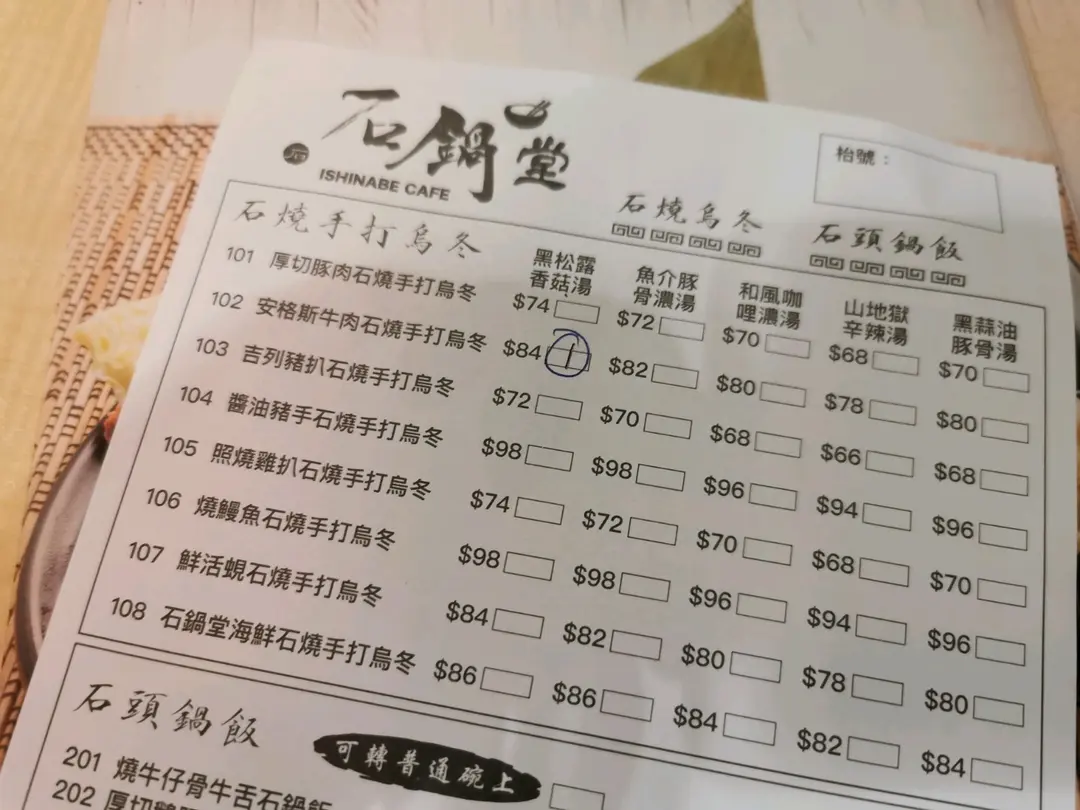 石鍋堂
ISHINABE CAFE
枱號：
石燒烏冬
石頭鍋飯
石燒手打烏冬
黑松露香菇湯 魚介豚骨濃湯 和風咖哩濃湯 山地獄辛辣湯 黑蒜油豚骨湯
101 厚切豚肉石燒手打烏冬 $74 $72 $70 $68 $70
102 安格斯牛肉石燒手打烏冬 $84 1 $82 $80 $78 $80
103 吉列豬扒石燒手打烏冬 $72 $70 $68 $66 $68
104 醬油豬手石燒手打烏冬 $98 $98 $96 $94 $96
105 照燒雞扒石燒手打烏冬 $74 $72 $70 $68 $70
106 燒鰻魚石燒手打烏冬 $98 $98 $96 $94 $96
107 鮮活蜆石燒手打烏冬 $84 $82 $80 $78 $80
108 石鍋堂海鮮石燒手打烏冬 $86 $86 $84 $82 $84
石頭鍋飯
可轉普通碗上
201 燒牛仔骨牛舌石鍋飯
202 厚切